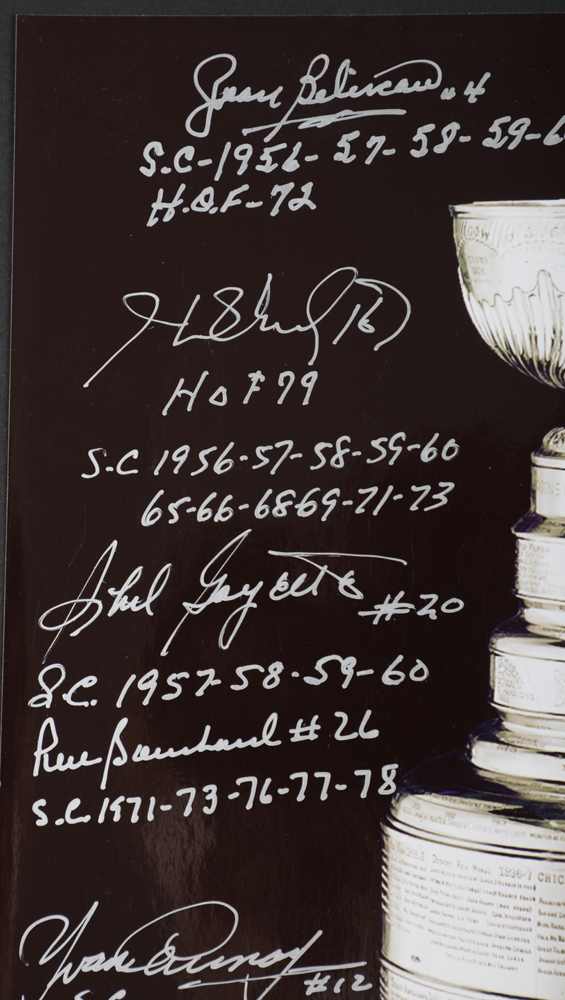 Jean Beliveau #4
S.C-1956-57-58-59-6
H.O.F-72
H Richard 16
HOF 79
S.C 1956-57-58-59-60
65-66-68-69-71-73
Phil Goyette #20
S.C. 1957-58-59-60
S.C. 1971-73-76-77-78
Yvan Cournoyer #12
S.C
1936-7 CHIC